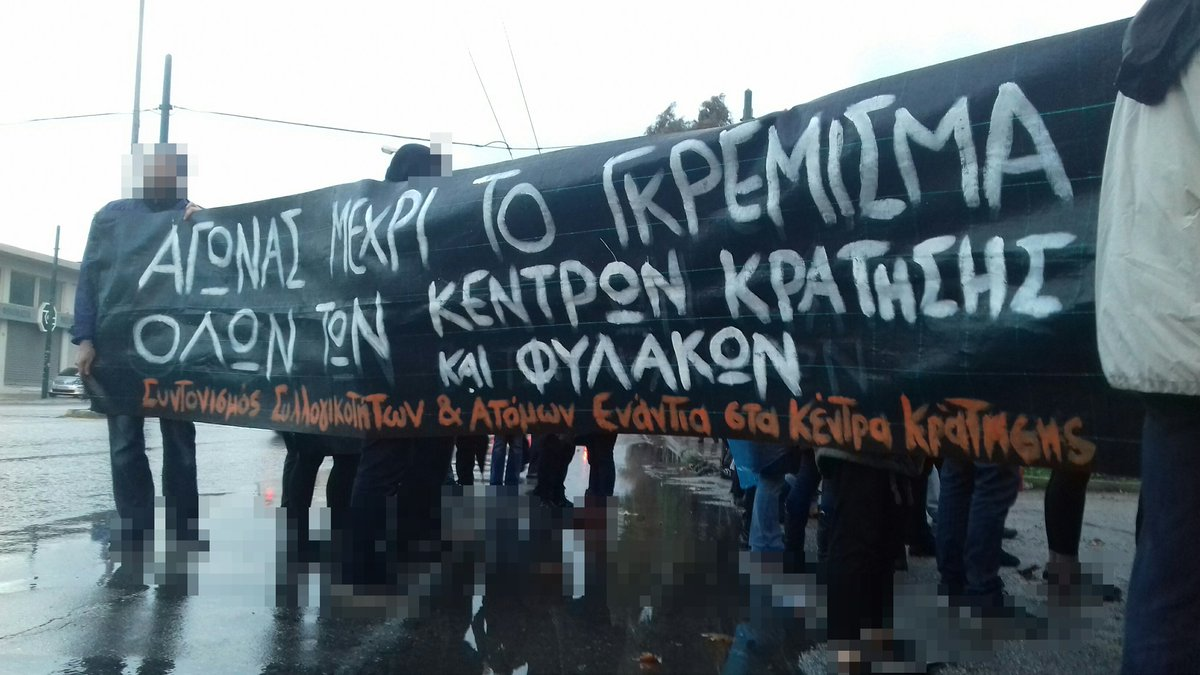 ΑΓΩΝΑΣ ΜΕΧΡΙ ΤΟ ΓΚΡΕΜΙΣΜΑ
ΟΛΩΝ ΤΩΝ ΚΕΝΤΡΩΝ ΚΡΑΤΗΣΗΣ
ΚΑΙ ΦΥΛΑΚΩΝ
Συντονισμός Συλλογικοτήτων & Ατόμων Ενάντια στα Κέντρα Κράτησης